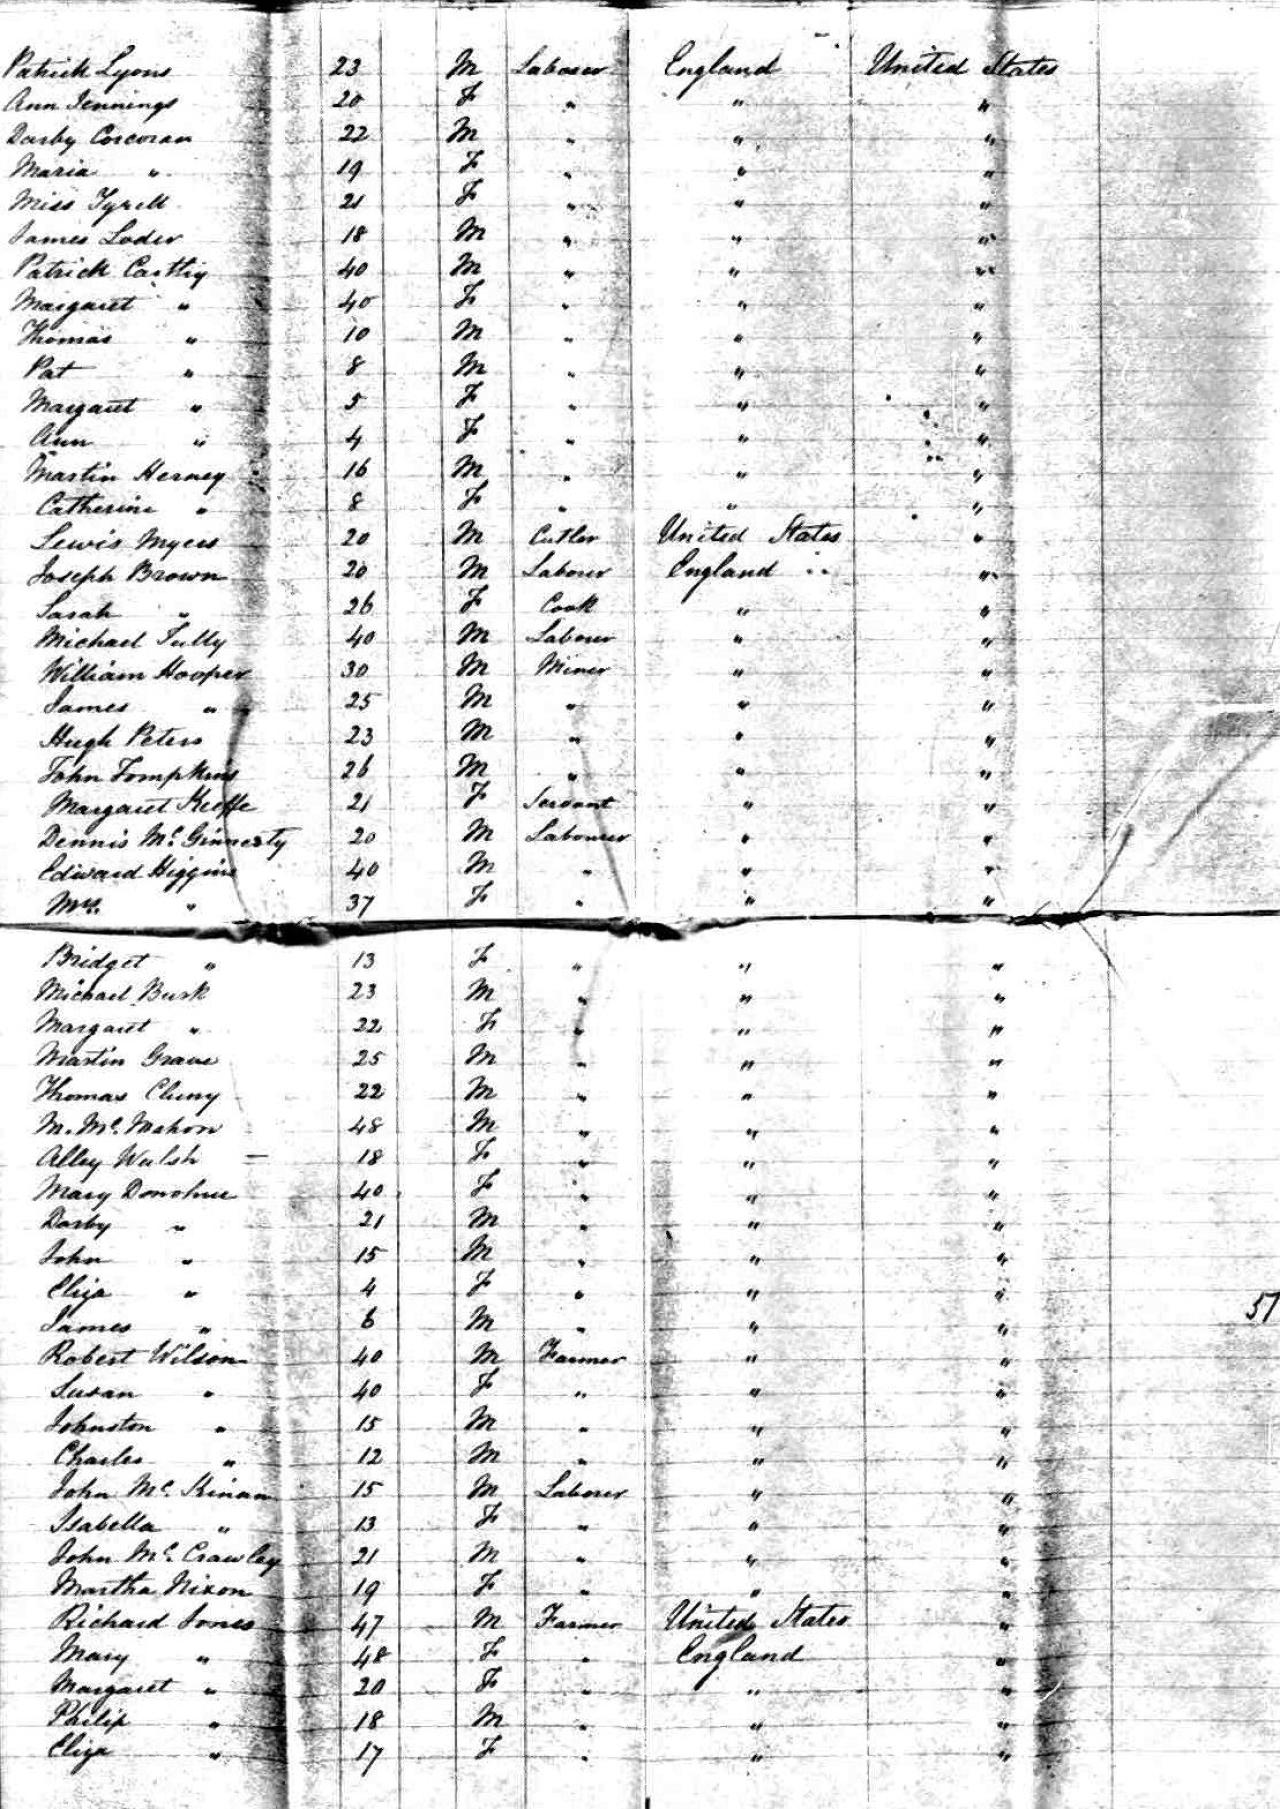 Patrick Lyons 23 M Laborer England United States
Ann Jennings 20 F " " "
Darby Corcoran 22 M " " "
Maria " 19 F " " "
Miss Tyrell 21 F " " "
James Loder 18 M " " "
Patrick 40 M " " "
Margaret " 40 F " " "
Thomas " 10 M " " "
Pat " 8 M " " "
Margaret " 5 F " " "
Ann " 4 F " " "
Martin Herney 16 M " " "
Catherine " 8 F " " "
Lewis Myers 20 M Cutler United States "
Joseph Brown 20 M Laborer England "
Sarah " 26 F Cook " "
Michael Tully 40 M Laborer " "
William Hooper 30 M Miner " "
James " 25 M " " "
Hugh Peters 23 M " " "
John Tompkins 26 M " " "
Margaret Keeffe 21 F Servant " "
Dennis Mc. Ginnesty 20 M Labourer " "
Edward Higgins 40 M " " "
Mrs. " 37 F " " "
Bridget " 13 F " " "
Michael Burk 23 M " " "
Margaret " 22 F " " "
Martin Grave 25 M " " "
Thomas Cluny 22 M " " "
M. Mc. Mahon 48 M " " "
Alley Walsh — 18 F " " "
Mary Donohue 40 F " " "
Darby " 21 M " " "
John " 15 M " " "
Eliza " 4 F " " "
James " 6 M " " "
57
Robert Wilson 40 M Farmer " "
Susan " 40 F " " "
Johnston " 15 M " " "
Charles " 12 M " " "
John Mc. Kinan 15 M Laborer " "
Isabella " 13 F " " "
John Mc. Crawley 21 M " " "
Martha Nixon 19 F " " "
Richard Jones 47 M Farmer United States "
Mary " 48 F " England "
Margaret " 20 F " " "
Philip " 18 M " " "
Eliza " 17 F " " "